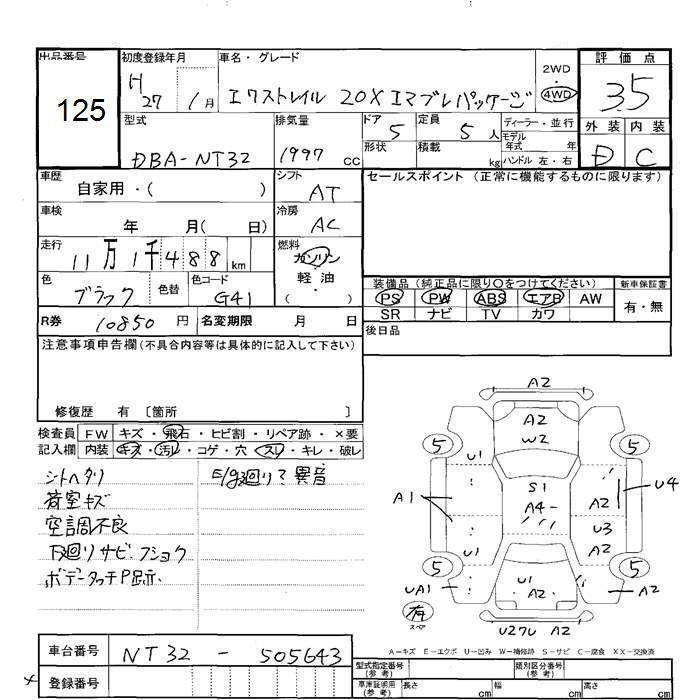 出品番号
125
初度登録年月
H 27 / 1月
車名・グレード
エクストレイル 20X エマブレパッケージ
2WD
4WD
評価点
3.5
型式
DBA-NT32
排気量
1997 cc
ドア
5
定員
5人
ディーラー・並行
モデル年式 年
形状
積載 kg
ハンドル 左・右
外装 内装
D C
車歴
自家用・( )
シフト
AT
セールスポイント (正常に機能するものに限ります)
車検
年 月( 日)
冷房
AC
走行
11万1千488 km
燃料
ガソリン
軽油
( )
色
ブラック
色替
色コード
G41
装備品 (純正品に限り○をつけてください)
新車保証書
PS PW ABS エアB AW
SR ナビ TV カワ
有・無
R券 10850円
名変期限 月 日
後日品
注意事項申告欄(不具合内容等は具体的に記入して下さい)
修復歴 有 〔箇所 〕
検査員記入欄
FW キズ・飛石・ヒビ割・リペア跡・×要
内装 キズ・汚レ・コゲ・穴・スレ・キレ・破レ
シートヘタリ
荷室キズ
空調不良
下廻りサビ.フショク
ボデータッチP跡.
E/g廻りで異音
A2
A2
W2
5 5
U1
S1
A4-
A1
A2
U4
U3
U1
A2
5 5
U1
A2
UA1
A2
有
スペア
U27U A2
A-キズ E-エクボ U-凹み W-補修跡 S-サビ C-腐食 XX-交換済
車台番号
NT32 - 505643
登録番号
型式指定番号(参考)
類別区分番号(参考)
車庫証明用(参考)
長さ cm
幅 cm
高さ cm